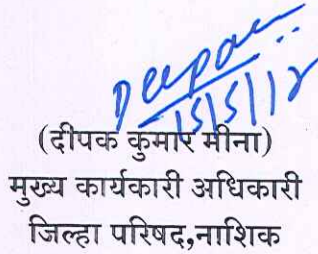 Deepak
15/5/18
(दीपक कुमार मीना)
मुख्य कार्यकारी अधिकारी
जिल्हा परिषद,नाशिक